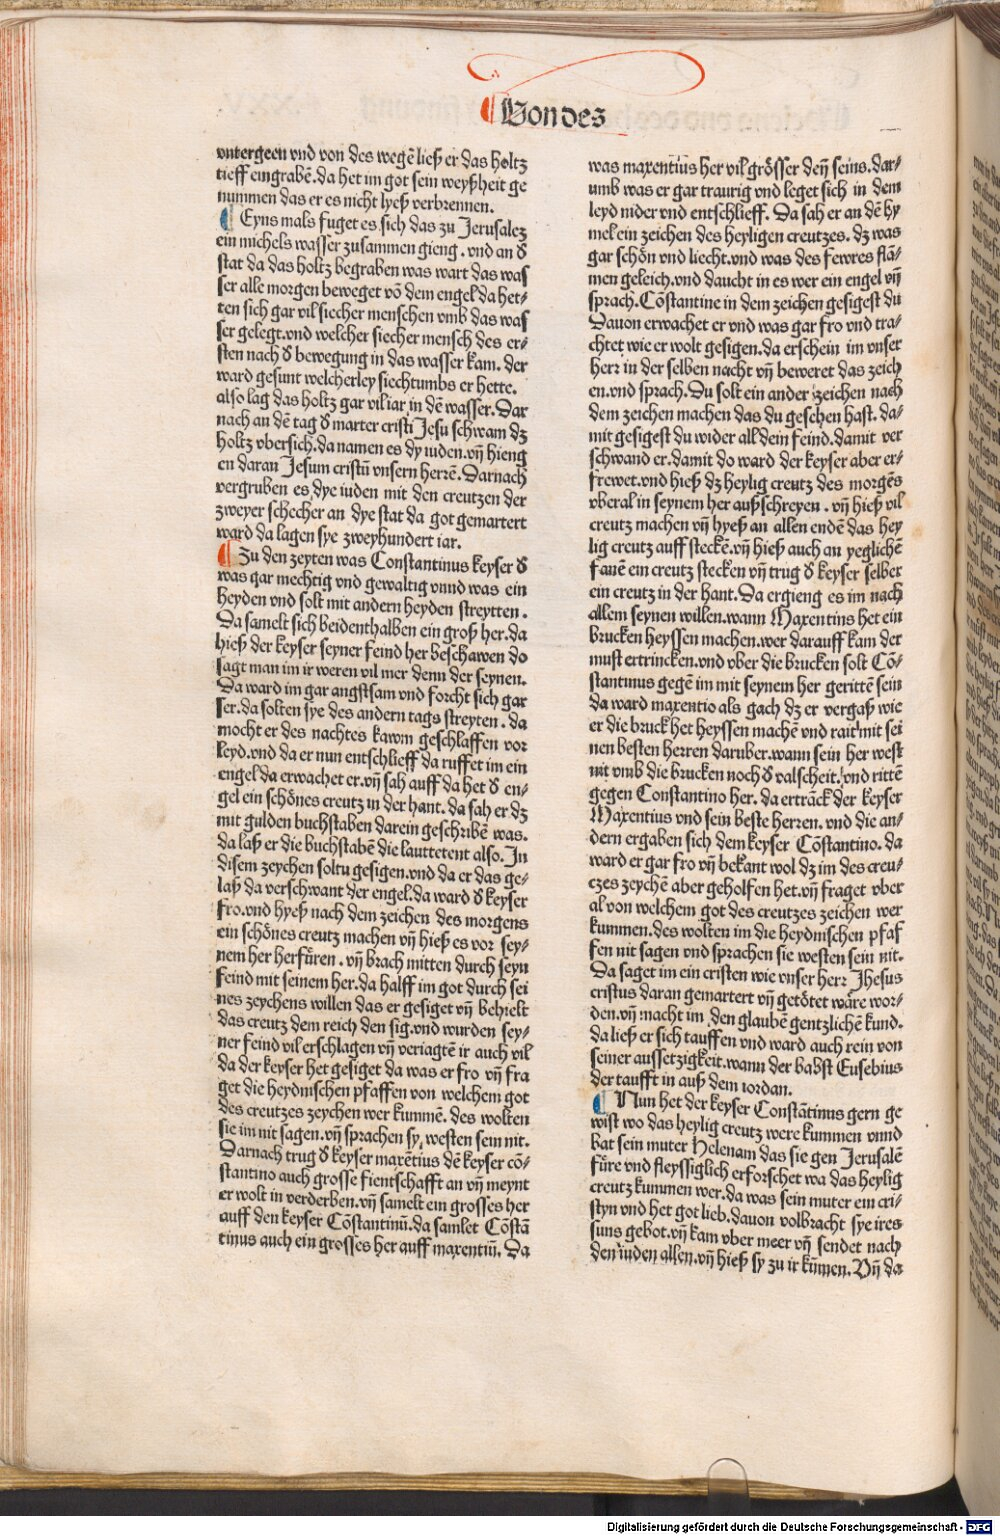 ¶ Von des
vntergeen vnd von des wegē ließ er das holtz
tieff eingrabē. da het im got sein weyßheit ge
nummen das er es nicht lyeß verbrennen.
¶ Eyns mals fuget es sich das zu Jerusalez
ein michels wasser zusammen gieng . vnd an d̕
stat da das holtz begraben was wart das was
ser alle morgen beweget vō dem engel da het⸗
ten sich gar vil siecher menschen vmb das was
ser gelegt. vnd welcher siecher mensch des er⸗
sten nach d̕ bewegung in das wasser kam. der
ward gesunt welcherley siechtumbs er hette.
also lag das holtz gar vil iar in dē wasser. Dar
nach an dē tag d̕ marter cristi Jesu schwam dz
holtz vbersich. da namen es dy iuden. vn̄ hieng
en daran Jesum cristū vnsern herrē. Darnach
vergruben es dye iuden mit den creutzen der
zweyer schecher an dye stat da got gemartert
ward da lagen sye zweyhundert iar.
¶ Zu den zeyten was Constantinus keyser d̕
was gar mechtig vnd gewaltig vnnd was ein
heyden vnd solt mit andern heyden streytten .
Da samelt sich beidenthalben ein groß her. da
hieß der keyser seyner feind her beschawen do
sagt man im ir weren vil mer denn der seynen.
Da ward im gar angstsam vnd forcht sich gar
ser. da solten sye des andern tags streyten . da
mocht er des nachtes kawm geschlaffen vor
leyd. vnd da er nun entschlieff da ruffet im ein
engel da erwachet er. vn̄ sah auff da het d̕ en⸗
gel ein schönes creutz in der hant. da sah er dz
mit gulden buchstaben darein geschribē was.
da laß er die buchstabē die lauttetent also. In
disem zeychen soltu gesigen. vnd da er das ge⸗
laß da verschwant der engel. da ward d̕ keyser
fro. vnd hyeß nach dem zeichen des morgens
ein schönes creutz machen vn̄ hieß es vor sey⸗
nem her herfüren . vn̄ brach mitten durch seyn
feind mit seinem her. da halff im got durch sei
nes zeychens willen das er gesiget vn̄ behielt
das creutz dem reich den sig. vnd wurden sey⸗
ner feind vil erschlagen vn̄ veriagtē ir auch vil
da der keyser het gesiget da was er fro vn̄ fra
get die heydnischen pfaffen von welchem got
des creutzes zeychen wer kummē. des wolten
sie im nit sagen. vn̄ sprachen sy westen sein nit.
Darnach trug d̕ keyser maxētius dē keyser cō⸗
stantino auch grosse fientschafft an vn̄ meynt
er wolt in verderben. vn̄ samelt ein grosses her
auff den keyser Cōstantinū. da samlet Cōstā
tinus auch ein grosses her auff maxentiū. Da
was maxentius her vil grösser deñ seins. dar⸗
umb was er gar traurig vnd leget sich in dem
leyd nider vnd entschlieff. Da sah er an dē hy
mel ein zeichen des heyligen creutzes. dz was
gar schön vnd liecht. vnd was des fewres flā⸗
men geleich. vnd daucht in es wer ein engel vn̄
sprach. Cōstantine in dem zeichen gesigest du
Dauon erwachet er vnd was gar fro vnd tra⸗
chtet wie er wolt gesigen. da erschein im vnser
herz in der selben nacht vn̄ beweret das zeich
en. vnd sprach. Du solt ein ander zeichen nach
dem zeichen machen das du gesehen hast. da⸗
mit gesigest du wider all dein feind. damit ver
schwand er. damit do ward der keyser aber er⸗
frewet. vnd hieß dz heylig creutz des morgēs
vberal in seynem her außschreyen . vn̄ hieß vil
creutz machen vn̄ hyeß an allen endē das hey
lig creutz auff steckē. vn̄ hieß auch an yeglichē
fanē ein creutz stecken vn̄ trug d̕ keyser selber
ein creutz in der hant. Da ergieng es im nach
allem seynen willen. wann Maxentius het ein
brucken heyssen machen. wer darauff kam der
must ertrincken. vnd vber die brucken solt Cō⸗
stantinus gegē im mit seynem her gerittē sein
da ward maxentio als gach dz er vergaß wie
er die bruck het heyssen machē vnd rait mit sei
nen besten herren daruber. wann sein her west
nit vmb die brucken noch d̕ valscheit. vnd rittē
gegen Constantino her. da ertrāck der keyser
Maxentius vnd sein beste herren. vnd die an⸗
dern ergaben sich dem keyser Cōstantino. da
ward er gar fro vn̄ bekant wol dz im des creu⸗
czes zeychē aber geholfen het. vn̄ fraget vber
al von welchem got des creutzes zeichen wer
kummen. des wolten im die heydnischen pfaf
fen nit sagen vnd sprachen sie westen sein nit.
Da saget im ein cristen wie vnser herr Jhesus
cristus daran gemartert vn̄ getötet wäre wor⸗
den. vn̄ macht im den glaubē gentzlichē kund.
da ließ er sich tauffen vnd ward auch rein von
seiner aussetzigkeit. wann der babst Eusebius
der taufft in auß dem iordan.
¶ Nun het der keyser Constātinus gern ge
wist wo das heylig creutz were kummen vnnd
bat sein muter Helenam das sie gen Jerusalē
füre vnd fleyssiglich erforschet wa das heylig
creutz kummen wer. da was sein muter ein cri⸗
styn vnd het got lieb. dauon volbracht sye ires
suns gebot. vn̄ kam vber meer vn̄ sendet nach
den iuden allen. vn̄ hieß sy zu ir kūmen. Vn̄ da
Digitalisierung gefördert durch die Deutsche Forschungsgemeinschaft - DFG